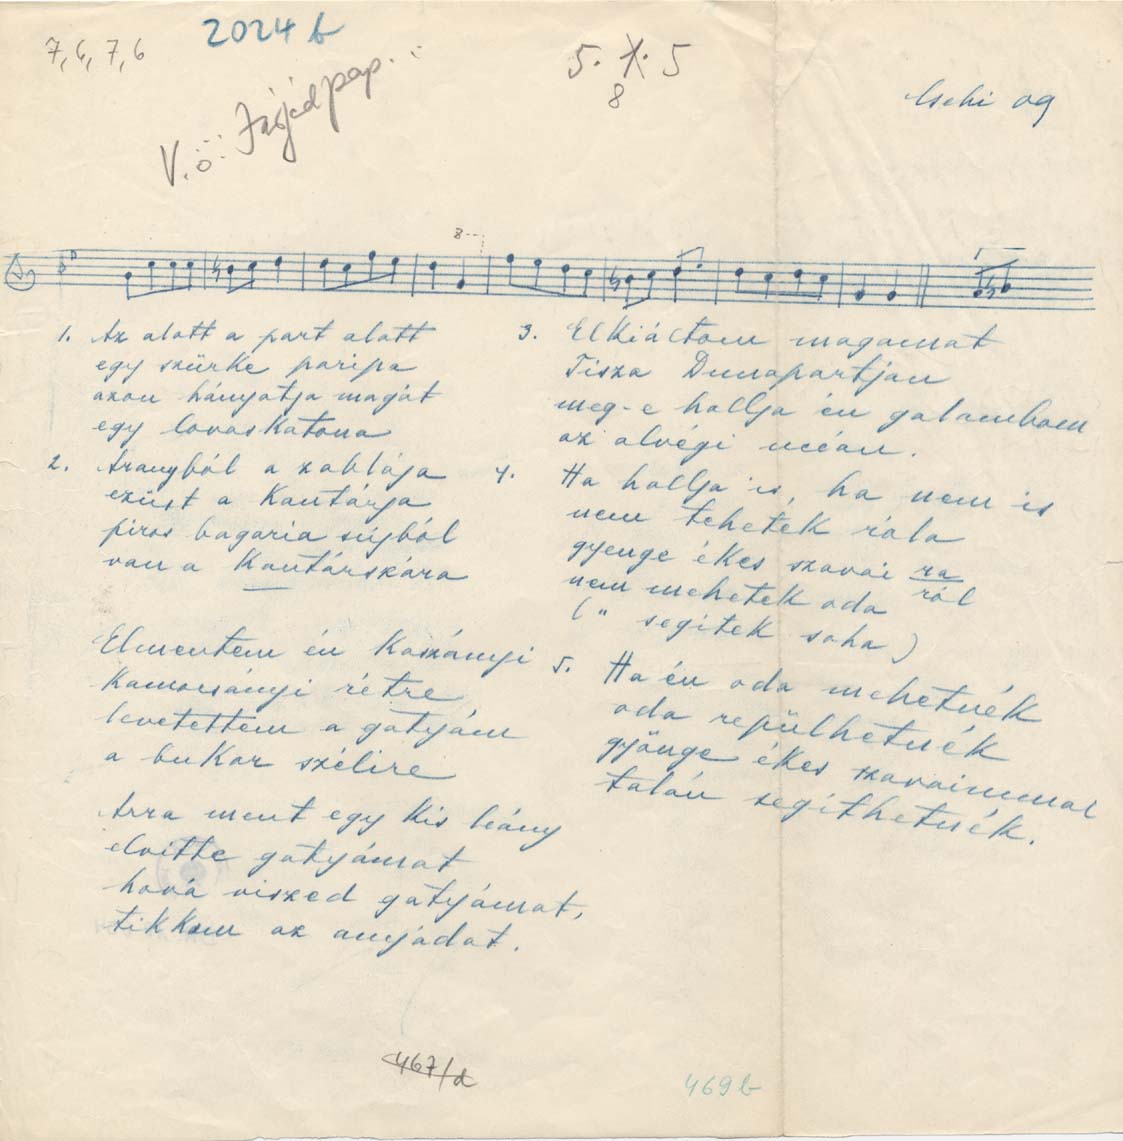 7, 6, 7, 6
2024 b
5. 7. 5
8
V. ö:
09
8
1. Az alatt a part alatt
egy szürke paripa
azon hányatja magát
egy lovaskatona
2. Aranyból a zablája
ezüst a kantárja
piros bagaria szijból
van a Kantárszára
Elmentem én
rétre
levetettem a gatyám
a bukor szélire
Arra ment egy kis leány
elvitte gatyámat
hová viszed gatyámat,
az anyádat.
3. Elkiáltom magamat
Tisza Dunapartján
meg-e hallja én galambom
az alvégi uccán.
4. Ha hallja is, ha nem is
nem tehetek róla
gyenge ékes szavai ra
ról
nem mehetek oda
( " segitek soha )
5. Ha én oda mehetnék
oda repülhetnék
gyönge ékes szavaimmal
talán segithetnék.
467/d
469 b